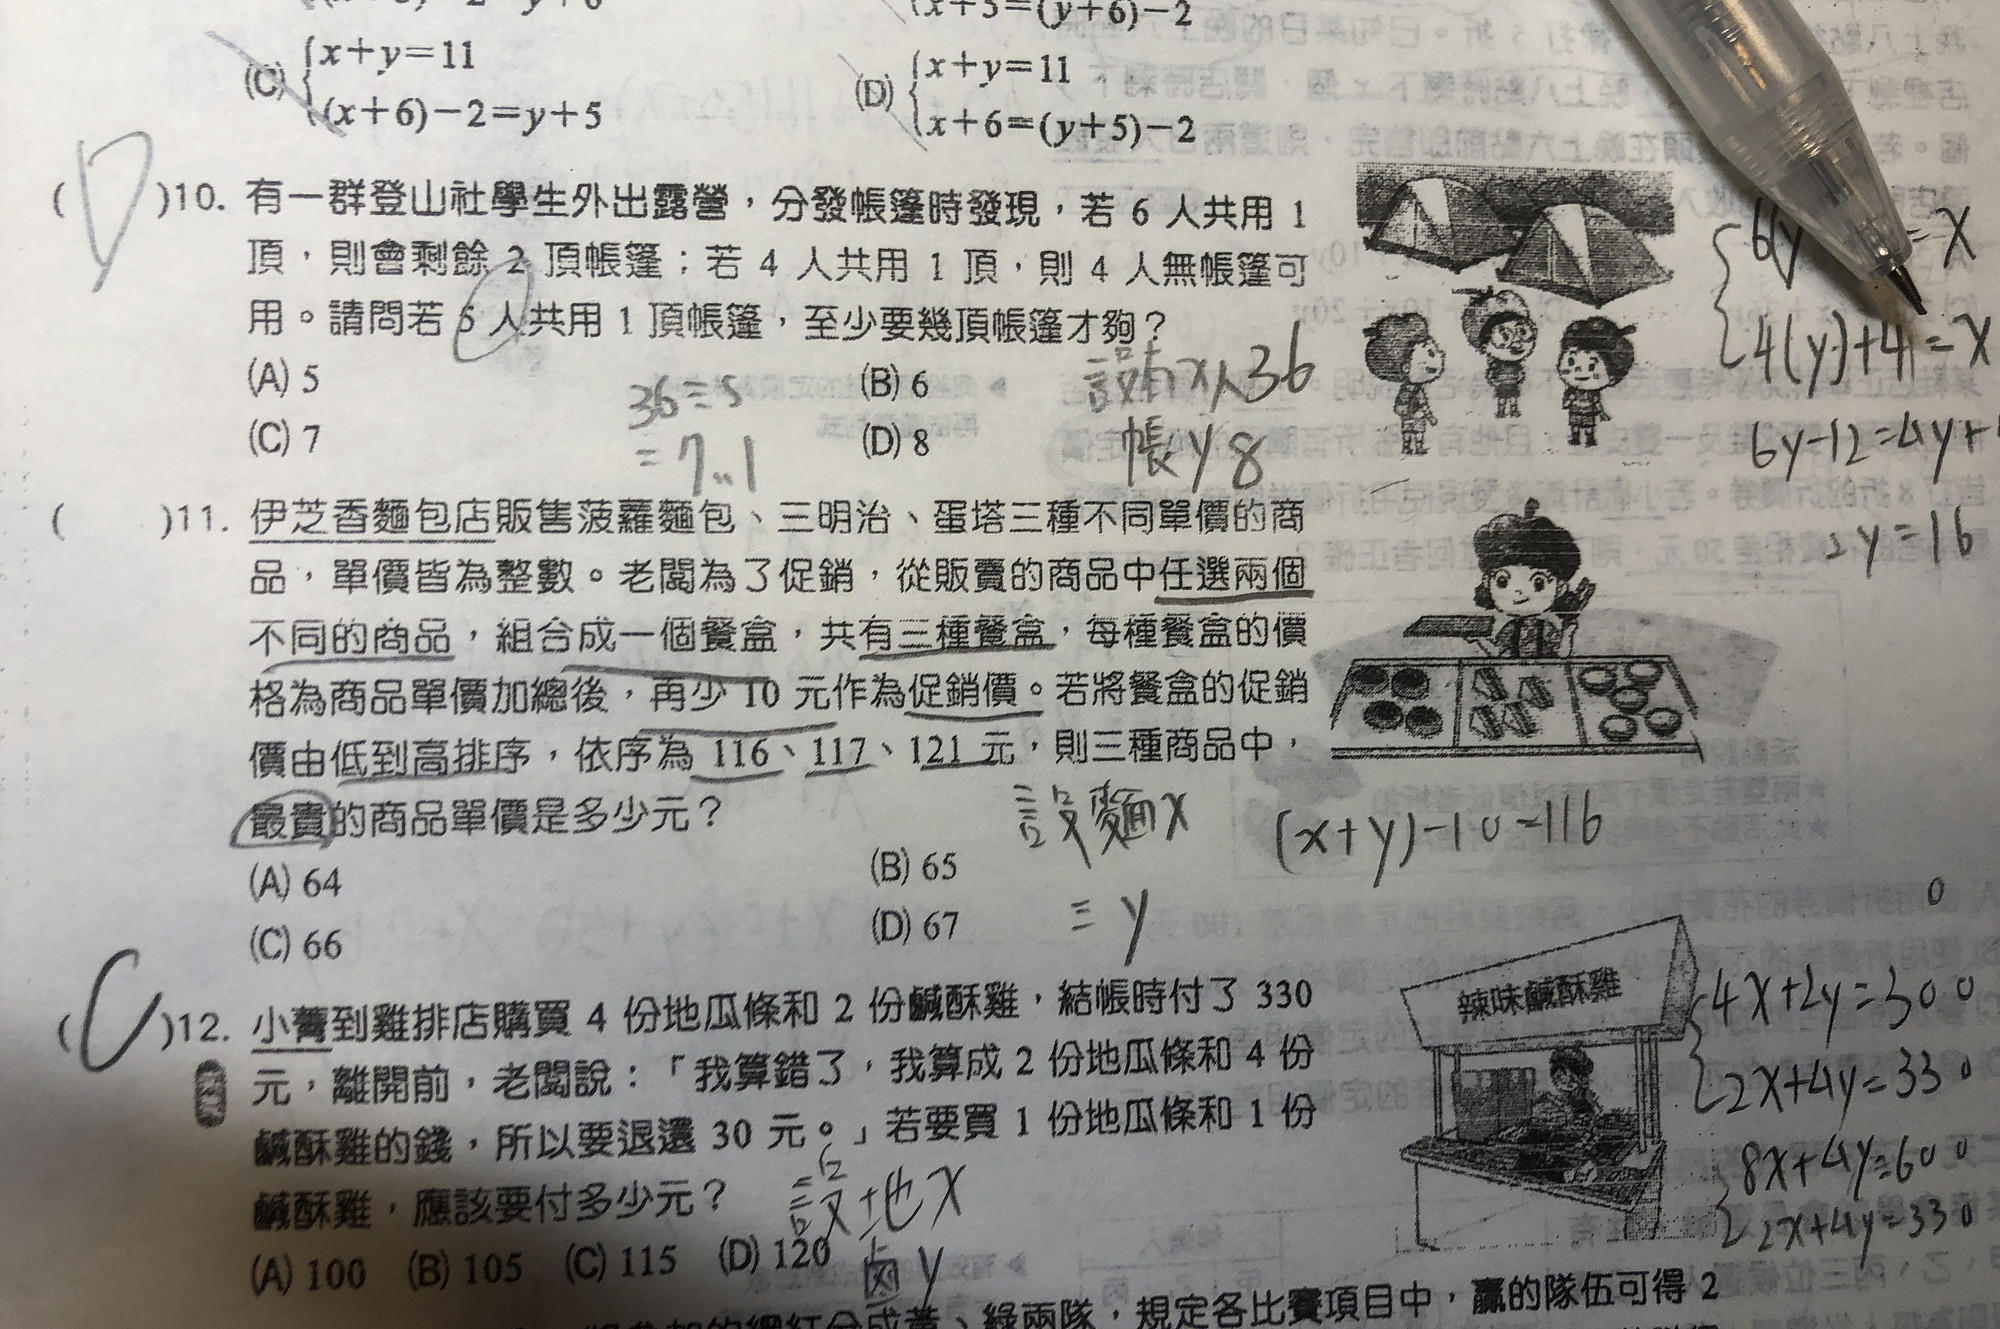 (C) { x+y=11
(x+6)-2=y+5
(D) { x+5=(y+6)-2
x+y=11
x+6=(y+5)-2
(D)10. 有一群登山社學生外出露營，分發帳篷時發現，若 6 人共用 1
頂，則會剩餘 2 頂帳篷；若 4 人共用 1 頂，則 4 人無帳篷可
用。請問若 5 人共用 1 頂帳篷，至少要幾頂帳篷才夠？
(A) 5
(B) 6
(C) 7
(D) 8
36÷5
=7...1
設有x人36
帳y 8
4(y)+4=x
6y-12=4y+
2y=16
( )11. 伊芝香麵包店販售菠蘿麵包、三明治、蛋塔三種不同單價的商
品，單價皆為整數。老闆為了促銷，從販賣的商品中任選兩個
不同的商品，組合成一個餐盒，共有三種餐盒，每種餐盒的價
格為商品單價加總後，再少 10 元作為促銷價。若將餐盒的促銷
價由低到高排序，依序為 116、117、121 元，則三種商品中，
最貴的商品單價是多少元？
(A) 64
(B) 65
(C) 66
(D) 67
設麵x
三y
(x+y)-10=116
(C)12. 小菁到雞排店購買 4 份地瓜條和 2 份鹹酥雞，結帳時付了 330
元，離開前，老闆說：「我算錯了，我算成 2 份地瓜條和 4 份
鹹酥雞的錢，所以要退還 30 元。」若要買 1 份地瓜條和 1 份
鹹酥雞，應該要付多少元？
(A) 100 (B) 105 (C) 115 (D) 120
設地x
鹵y
辣味鹹酥雞
4x+2y=300
2x+4y=330
8x+4y=600
2x+4y=330
綠兩隊，規定各比賽項目中，贏的隊伍可得 2